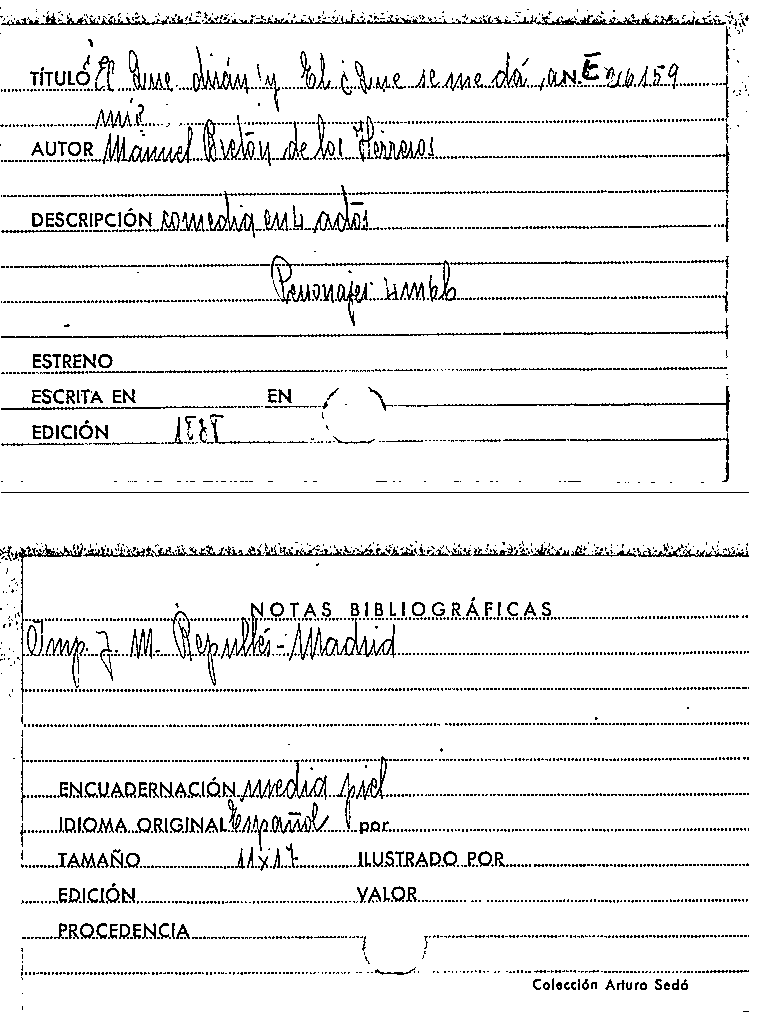 TÍTULO El Qué dirán y El ¿Qué se me dá a N.E 26159
mí?
AUTOR Manuel Bretón de los Herreros
DESCRIPCIÓN comedia en 4 actos
Personajes 4m6h
ESTRENO
ESCRITA EN EN
EDICIÓN
NOTAS BIBLIOGRÁFICAS
Imp. J. M. Repullés - Madrid
ENCUADERNACIÓN media piel
IDIOMA ORIGINAL Español por
TAMAÑO 11x17 ILUSTRADO POR
EDICIÓN VALOR
PROCEDENCIA
Colección Arturo Sedó